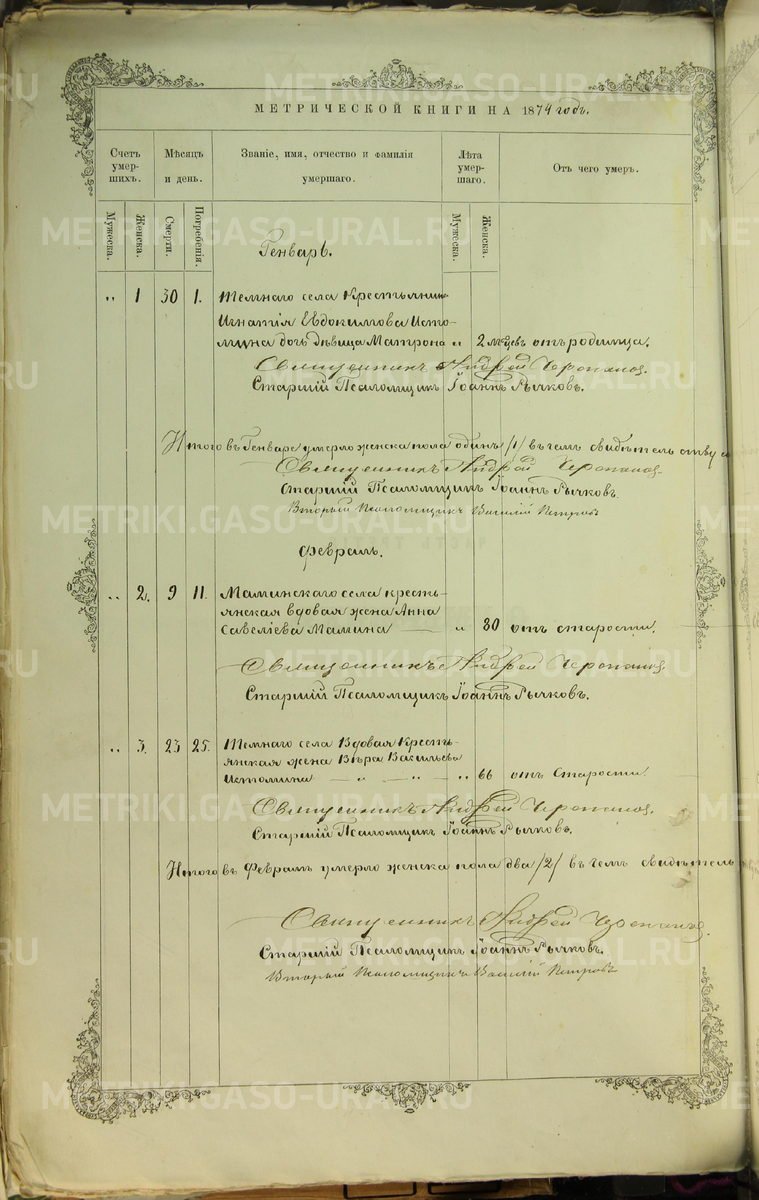 МЕТРИЧЕСКОЙ КНИГИ НА 1874 годъ.
Счетъ умер-шихъ.
Мѣсяцъ и день.
Званіе, имя, отчество и фамилія умершаго.
Лѣта умер-шаго.
Отъ чего умеръ.
Мужеска.
Женска.
Смерти.
Погребенія.
Мужеска.
Женска.
Генварь.
" 1 30 1. Темнаго села Крестьянина
Игнатія Евдокимова Исто-
мина дочь дѣвица Матрона " 2 мѣсцевъ отъ родимца.
Священникъ Андрей Черепановъ.
Старшій Псаломщикъ Іоаннъ Рычковъ.
Итого въ Генваре умерло женска пола одинъ /1/ въ чемъ свидѣтельству
Священникъ Андрей Черепановъ
Старшій Псаломщикъ Іоаннъ Рычковъ.
Вторый Псаломщикъ Василій Петровъ
Февраль.
" 2. 9 11. Маминскаго села кресть-
янская вдовая жена Анна
Савеліева Мамина — " 80 отъ старости.
Священникъ Андрей Черепановъ
Старшій Псаломщикъ Іоаннъ Рычковъ.
" 3. 23 25. Темнаго села Вдовая Кресть-
янская жена Вѣра Васильева
Истомина — " — " — " 66 отъ Старости.
Священникъ Андрей Черепановъ.
Старшій Псаломщикъ Іоаннъ Рычковъ.
Итого въ Февралѣ умерло женска пола два /2/ въ чемъ свидѣтель
Священникъ Андрей Черепановъ.
Старшій Псаломщикъ Іоаннъ Рычковъ.
Вторый Псаломщикъ Василій Петровъ
METRIKI.GASO-URAL.RU